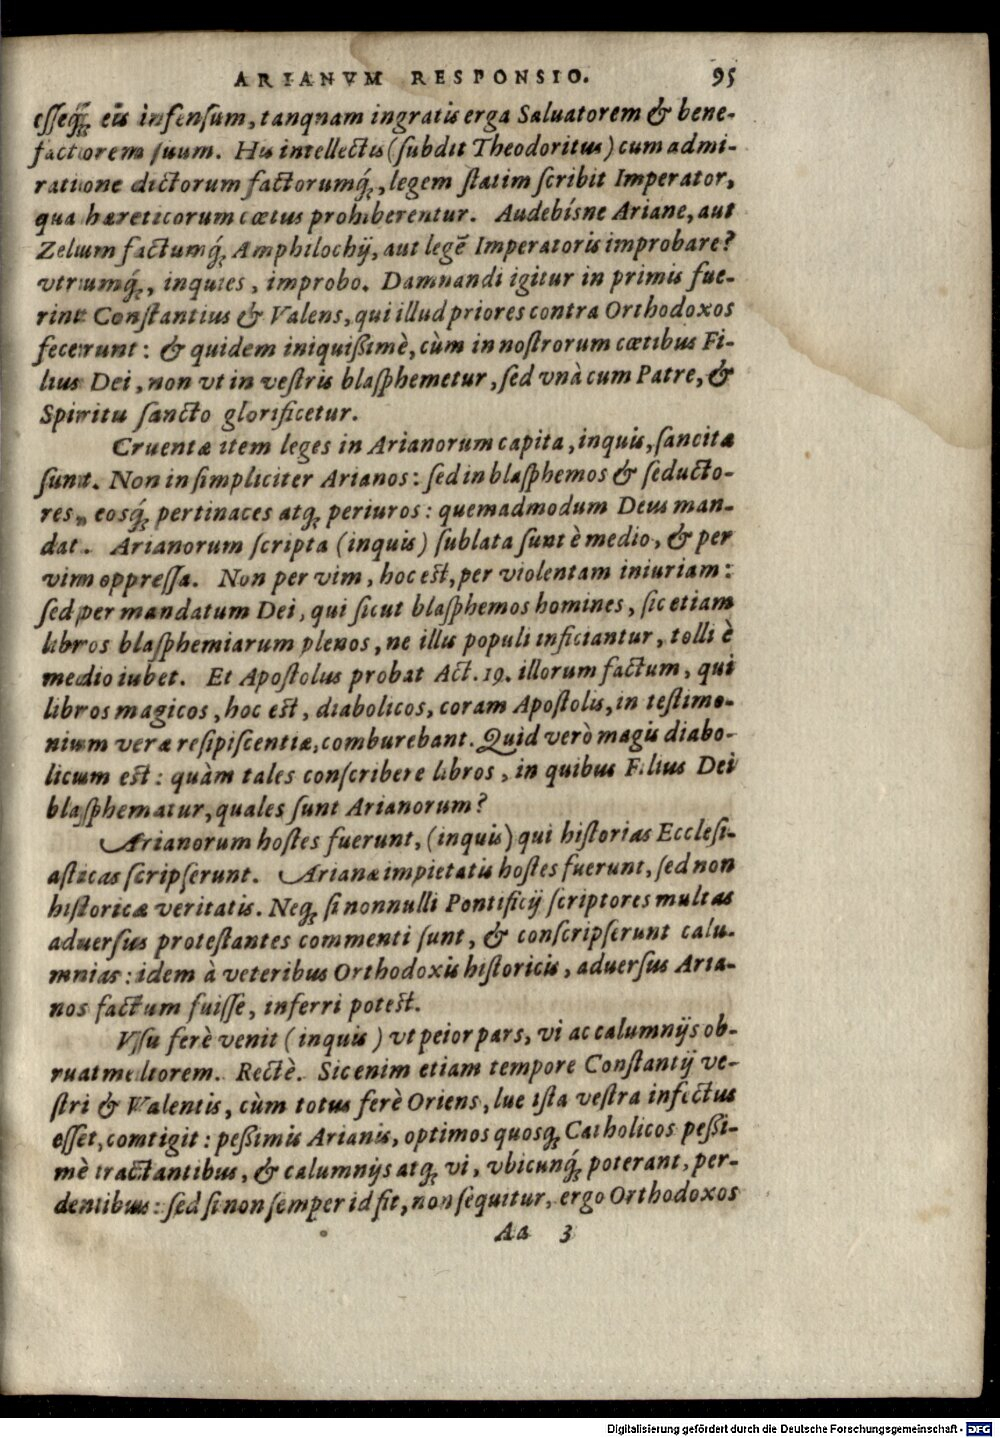 ARIANVM RESPONSIO. 95
eſſeq́; eis infenſum, tanqnam ingratis erga Saluatorem & bene-
factorem ſuum. His intellectis (ſubdit Theodoritus) cum admi-
ratione dictorum factorumq́;, legem ſtatim ſcribit Imperator,
qua hæreticorum cœtus prohiberentur. Audebísne Ariane, aut
Zelum factumq́; Amphilochij, aut legē Imperatoris improbare?
vtrumq́;, inquies, improbo. Damnandi igitur in primis fue-
rint Conſtantius & Valens, qui illud priores contra Orthodoxos
fecerunt: & quidem iniquißimè, cùm in noſtrorum cœtibus Fi-
lius Dei, non vt in veſtris blaſphemetur, ſed vnà cum Patre, &
Spiritu ſancto glorificetur.
Cruentæ item leges in Arianorum capita, inquis, ſancitæ
ſunt. Non in ſimpliciter Arianos: ſed in blaſphemos & ſeducto-
res, eosq́; pertinaces atq; periuros: quemadmodum Deus man-
dat. Arianorum ſcripta (inquis) ſublata ſunt è medio, & per
vim oppreſſa. Non per vim, hoc eſt, per violentam iniuriam:
ſed per mandatum Dei, qui ſicut blaſphemos homines, ſic etiam
libros blaſphemiarum plenos, ne illis populi inficiantur, tolli è
medio iubet. Et Apoſtolus probat Act. 19. illorum factum, qui
libros magicos, hoc eſt, diabolicos, coram Apoſtolis, in teſtimo-
nium veræ reſipiſcentiæ, comburebant. Quid verò magis diabo-
licum eſt: quàm tales conſcribere libros, in quibus Filius Dei
blaſphematur, quales ſunt Arianorum?
Arianorum hoſtes fuerunt, (inquis) qui hiſtorias Eccleſi-
aſticas ſcripſerunt. Arianæ impietatis hoſtes fuerunt, ſed non
hiſtoricæ veritatis. Neq; ſi nonnulli Pontificij ſcriptores multas
aduerſus proteſtantes commenti ſunt, & conſcripſerunt calu-
mnias: idem à veteribus Orthodoxis hiſtoricis, aduerſus Aria-
nos factum fuiſſe, inferri poteſt.
Vſu ferè venit (inquis) vt peior pars, vi ac calumnijs ob-
ruat meliorem. Rectè. Sic enim etiam tempore Conſtantij ve-
ſtri & Valentis, cùm totus ferè Oriens, lue iſta veſtra infectus
eſſet, contigit: peßimis Arianis, optimos quosq; Catholicos peßi-
mè tractantibus, & calumnijs atq; vi, vbicunq́; poterant, per-
dentibus: ſed ſi non ſemper id fit, non ſequitur, ergo Orthodoxos
Aa 3
Digitalisierung gefördert durch die Deutsche Forschungsgemeinschaft - DFG